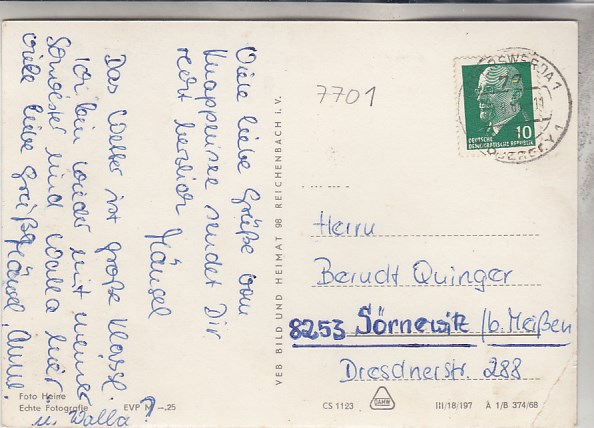 Viele liebe Grüße vom
Knappensee sendet Dir
recht herzlich
Hänsel
Das Wetter ist große Klasse.
Ich bin wieder mit meiner
und Walla hier
viele liebe Grüße Hänsel,
u. Walla?
7701
HOYERSWERDA 1
DEUTSCHE
DEMOKRATISCHE REPUBLIK
10
Herrn
Berndt Quinger
8253 Sörnewitz /b. Meißen
Dresdnerstr. 288
VEB BILD UND HEIMAT 98 REICHENBACH i. V.
Foto Heine
Echte Fotografie EVP M –.25
CS 1123
III/18/197 A 1/B 374/68